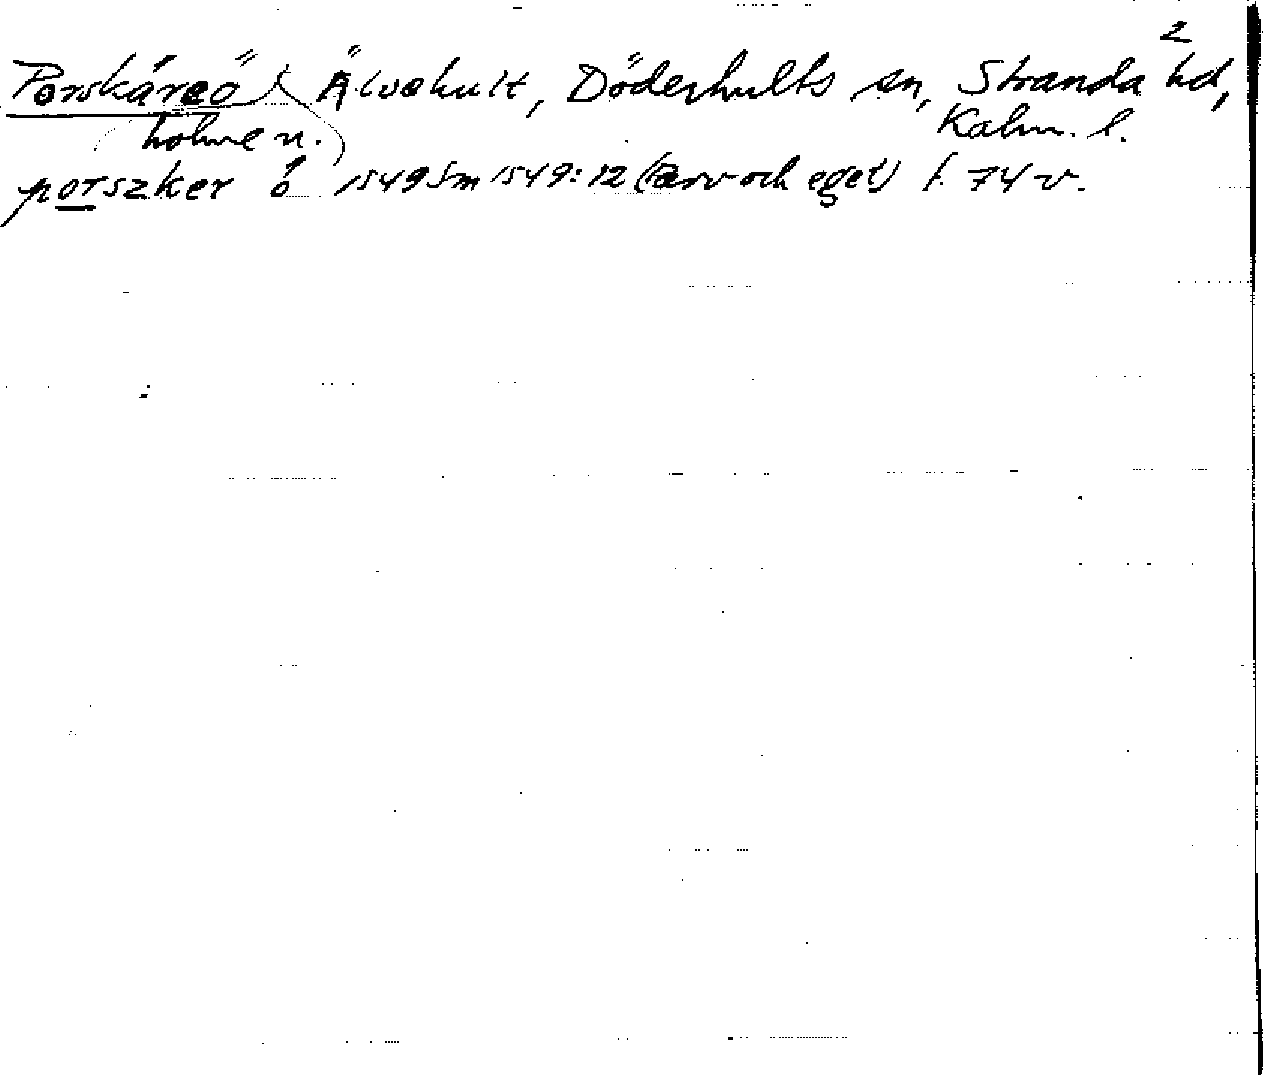 2
Porskäreö Älvehult, Döderhults sn, Stranda hd,
holme n. Kalm. l.
porszker ö 1549 Sm 1549:12 (arv och eget) f. 74 v.